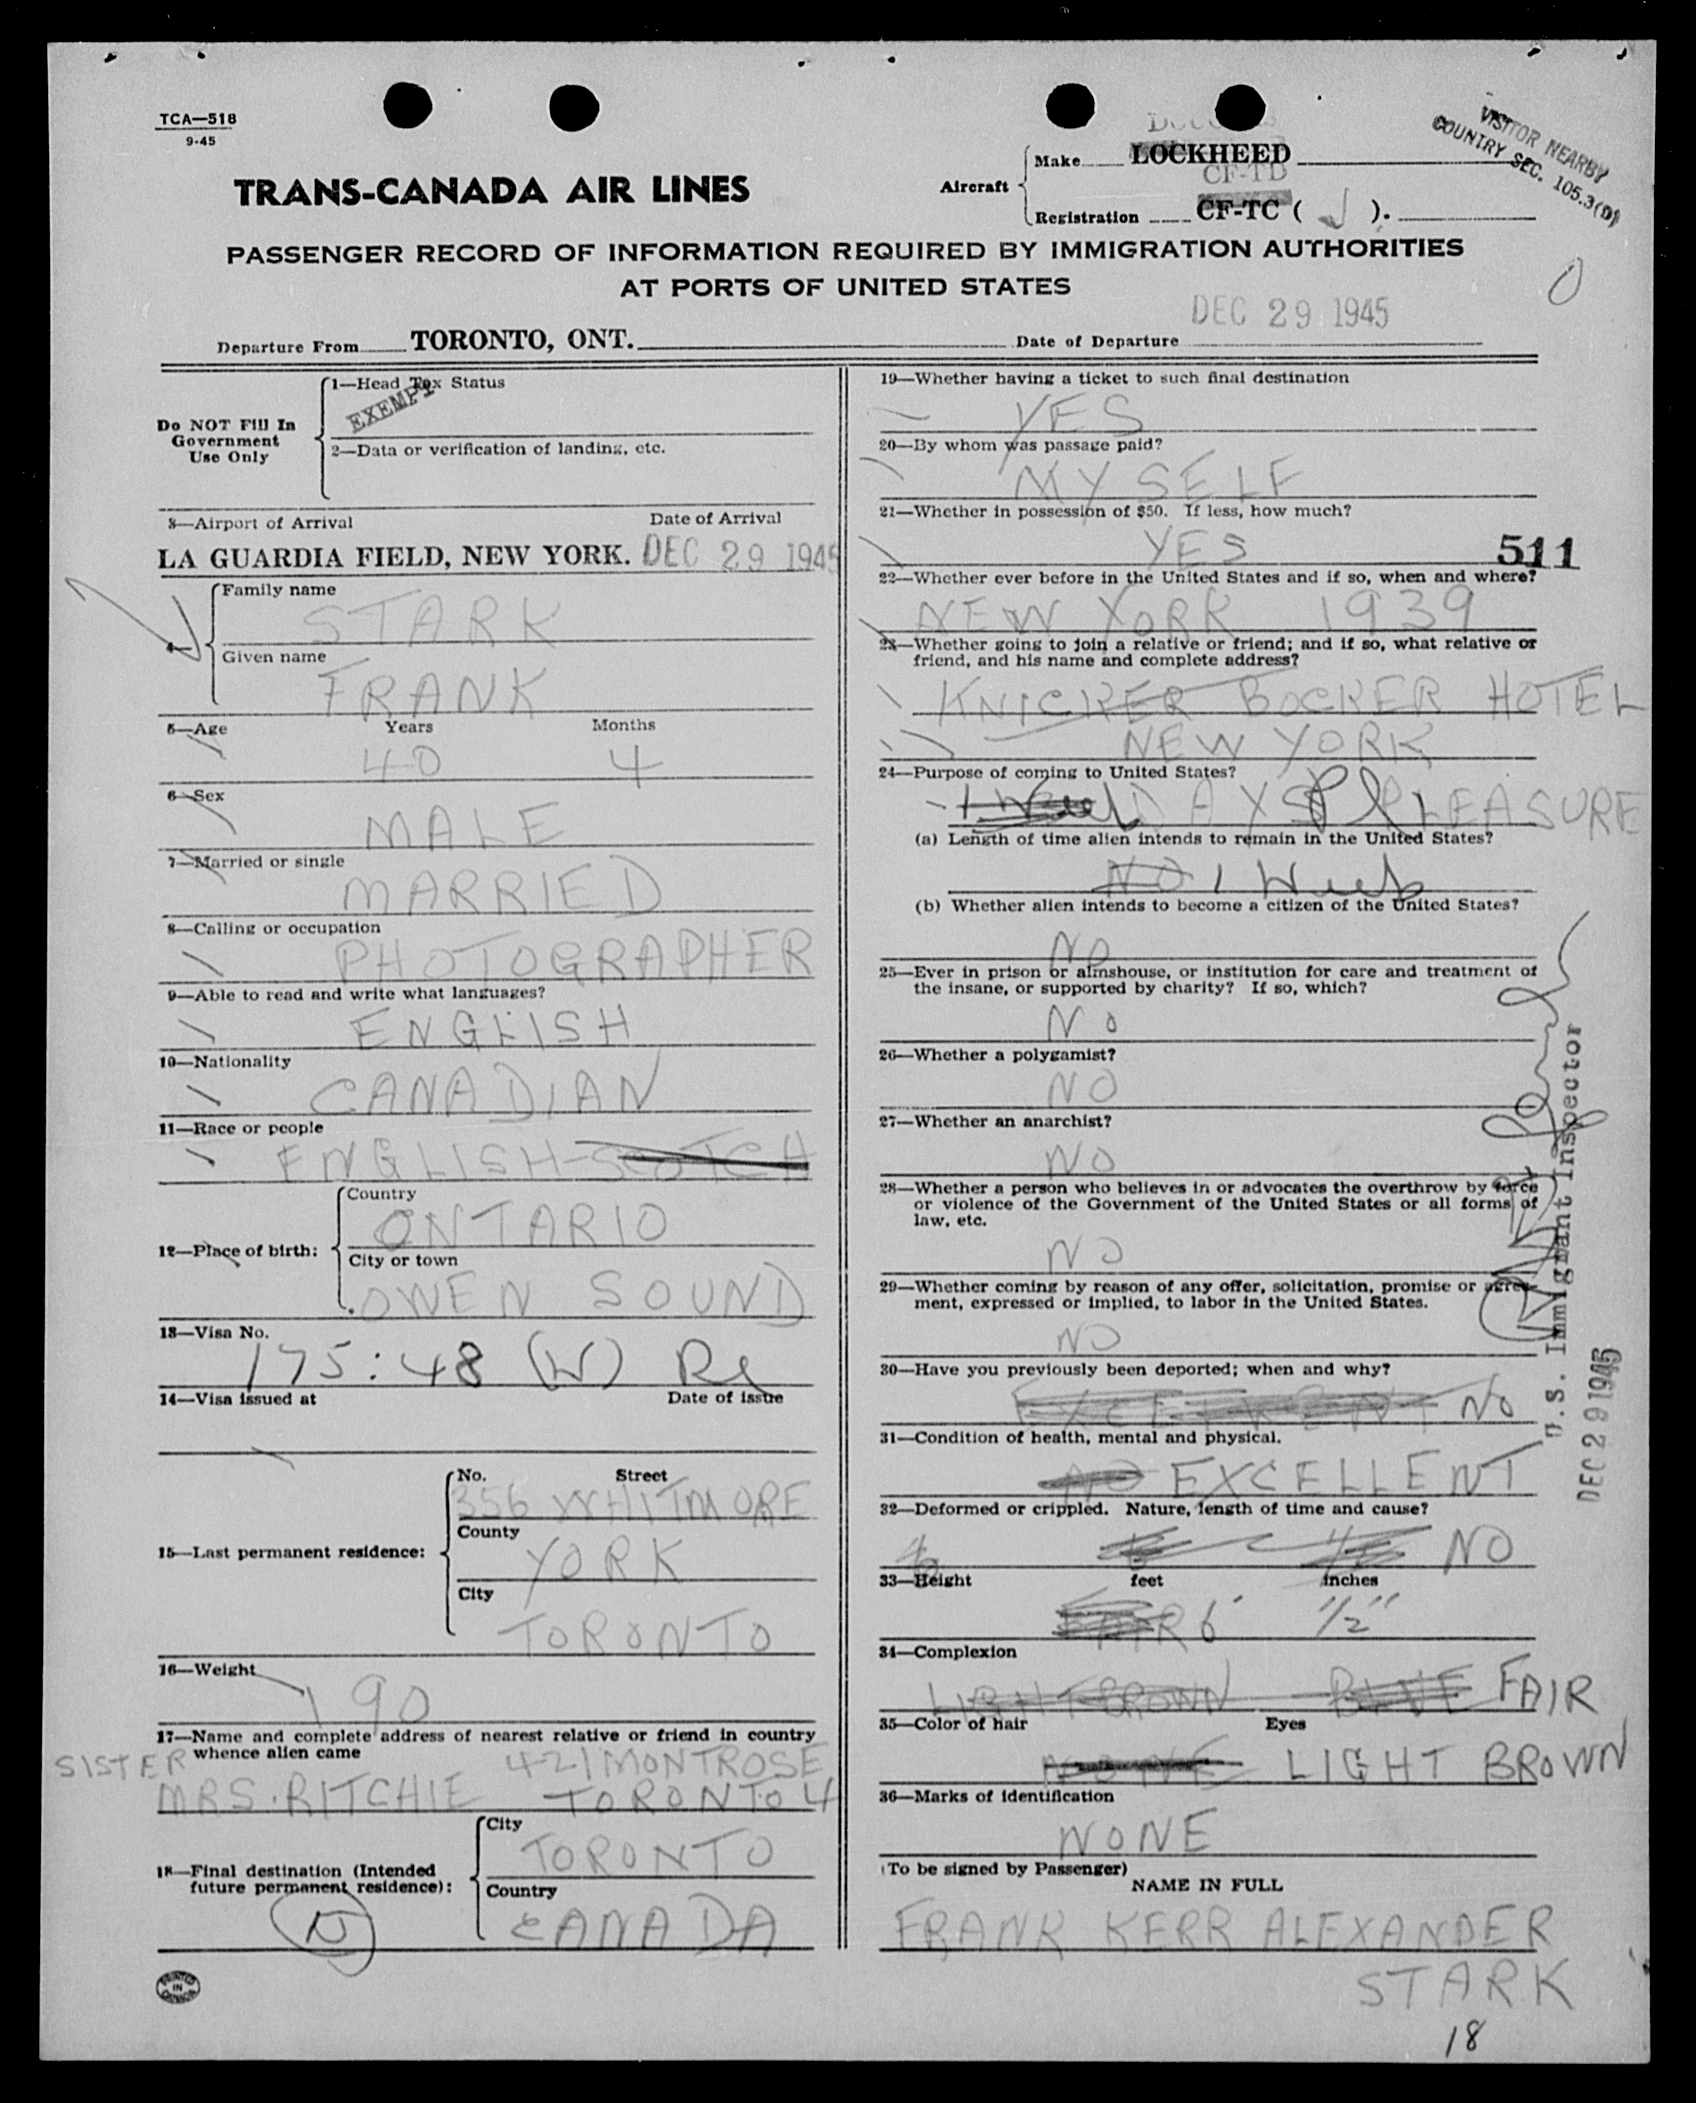 TCA—518
9-45
TRANS-CANADA AIR LINES
Aircraft
Make LOCKHEED
CF-TD
Registration CF-TC ( J ).
VISITOR NEARBY
COUNTRY SEC. 105.3(D)
PASSENGER RECORD OF INFORMATION REQUIRED BY IMMIGRATION AUTHORITIES
AT PORTS OF UNITED STATES
DEC 29 1945
Departure From TORONTO, ONT. Date of Departure
Do NOT Fill In
Government
Use Only
1—Head Tax Status
EXEMPT
2—Data or verification of landing, etc.
3—Airport of Arrival Date of Arrival
LA GUARDIA FIELD, NEW YORK. DEC 29 1945
4—
Family name
STARK
Given name
FRANK
5—Age Years Months
40 4
6—Sex
MALE
7—Married or single
MARRIED
8—Calling or occupation
PHOTOGRAPHER
9—Able to read and write what languages?
ENGLISH
10—Nationality
CANADIAN
11—Race or people
ENGLISH-SCOTCH
12—Place of birth:
Country
ONTARIO
City or town
OWEN SOUND
13—Visa No.
175:48 (W)
14—Visa issued at Date of issue
15—Last permanent residence:
No. Street
356 WHITMORE
County
YORK
City
TORONTO
16—Weight
190
17—Name and complete address of nearest relative or friend in country
whence alien came
SISTER 421 MONTROSE
MRS. RITCHIE TORONTO 4
18—Final destination (Intended
future permanent residence):
City
TORONTO
Country
CANADA
N
PRINTED
IN
CANADA
19—Whether having a ticket to such final destination
YES
20—By whom was passage paid?
MYSELF
21—Whether in possession of $50. If less, how much?
YES
511
22—Whether ever before in the United States and if so, when and where?
NEW YORK 1939
23—Whether going to join a relative or friend; and if so, what relative or
friend, and his name and complete address?
KNICKER BOCKER HOTEL
NEW YORK
24—Purpose of coming to United States?
DAYS PLEASURE
(a) Length of time alien intends to remain in the United States?
NO 1 Week
(b) Whether alien intends to become a citizen of the United States?
NO
25—Ever in prison or almshouse, or institution for care and treatment of
the insane, or supported by charity? If so, which?
NO
26—Whether a polygamist?
NO
27—Whether an anarchist?
NO
28—Whether a person who believes in or advocates the overthrow by force
or violence of the Government of the United States or all forms of
law, etc.
NO
29—Whether coming by reason of any offer, solicitation, promise or agree-
ment, expressed or implied, to labor in the United States.
NO
30—Have you previously been deported; when and why?
EXCELLENT NO
31—Condition of health, mental and physical.
NO EXCELLENT
32—Deformed or crippled. Nature, length of time and cause?
NO
33—Height feet inches
FAIR 6' 1/2"
34—Complexion
LIGHT BROWN BLUE FAIR
35—Color of hair Eyes
NONE LIGHT BROWN
36—Marks of identification
NONE
(To be signed by Passenger)
NAME IN FULL
FRANK KERR ALEXANDER
STARK
18
U.S. Immigrant Inspector
DEC 29 1945